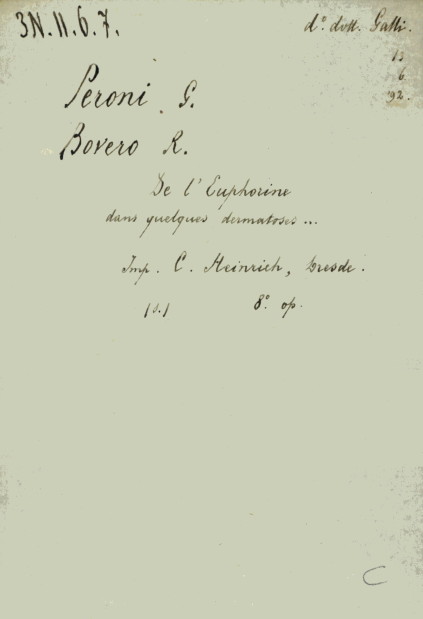 3N.II.6.7.
d° dott. Gatti.
13
6
92.
Peroni G.
Bovero R.
De l'Euphorine
dans quelques dermatoses...
Imp. C. Heinrich, Dresde.
(s.d.) 8° op.
C